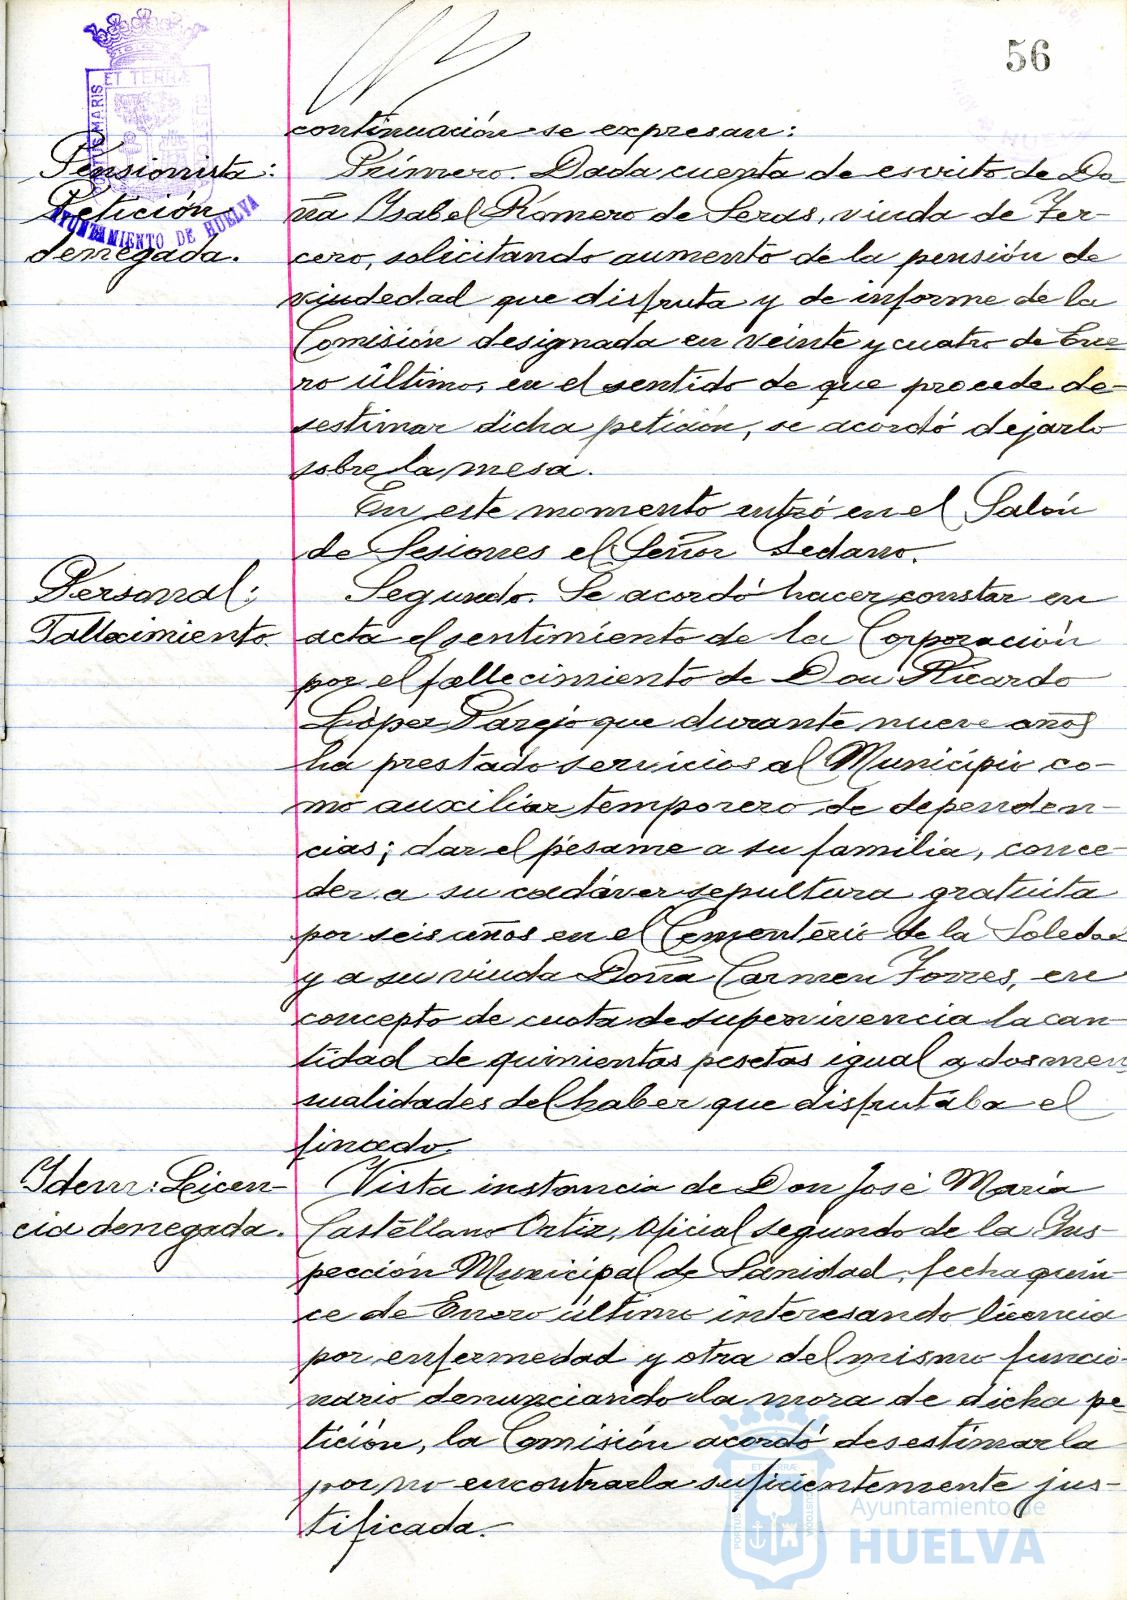 56
continuación se expresan:
Pensionista:
Petición
denegada.
Primero. Dada cuenta de escrito de Do-
ña Ysabel Romero de Seras, viuda de Ter-
cero, solicitando aumento de la pensión de
viudedad que disfruta y de informe de la
Comisión designada en veinte y cuatro de Ene-
ro último, en el sentido de que procede de-
sestimar dicha petición, se acordó dejarlo
sobre la mesa.
En este momento entró en el Salón
de Sesiones el Señor Sedano.
Personal:
Fallecimiento.
Segundo. Se acordó hacer constar en
acta el sentimiento de la Corporación
por el fallecimiento de Don Ricardo
López Parejo que durante nueve años
ha prestado servicios al Municipio co-
mo auxiliar temporero de dependen-
cias; dar el pésame a su familia, conce-
der a su cadáver sepultura gratuita
por seis años en el Cementerio de la Soledad
y a su viuda Doña Carmen Torres, en
concepto de cuota de supervivencia la can-
tidad de quinientas pesetas igual a dos men
sualidades del haber que disfrutaba el
finado.
Ydem: Licen-
cia denegada.
Vista instancia de Don José María
Castellano Ortiz, Oficial segundo de la Yns-
pección Municipal de Sanidad, fecha quin-
ce de Enero último interesando licencia
por enfermedad y otra del mismo funcio-
nario denunciando la mora de dicha pe-
tición, la Comisión acordó desestimarla
por no encontrarla suficientemente jus-
tificada.
AYUNTAMIENTO DE HUELVA
PORTUS MARIS ET TERRÆ CUSTODIA
Ayuntamiento de
HUELVA